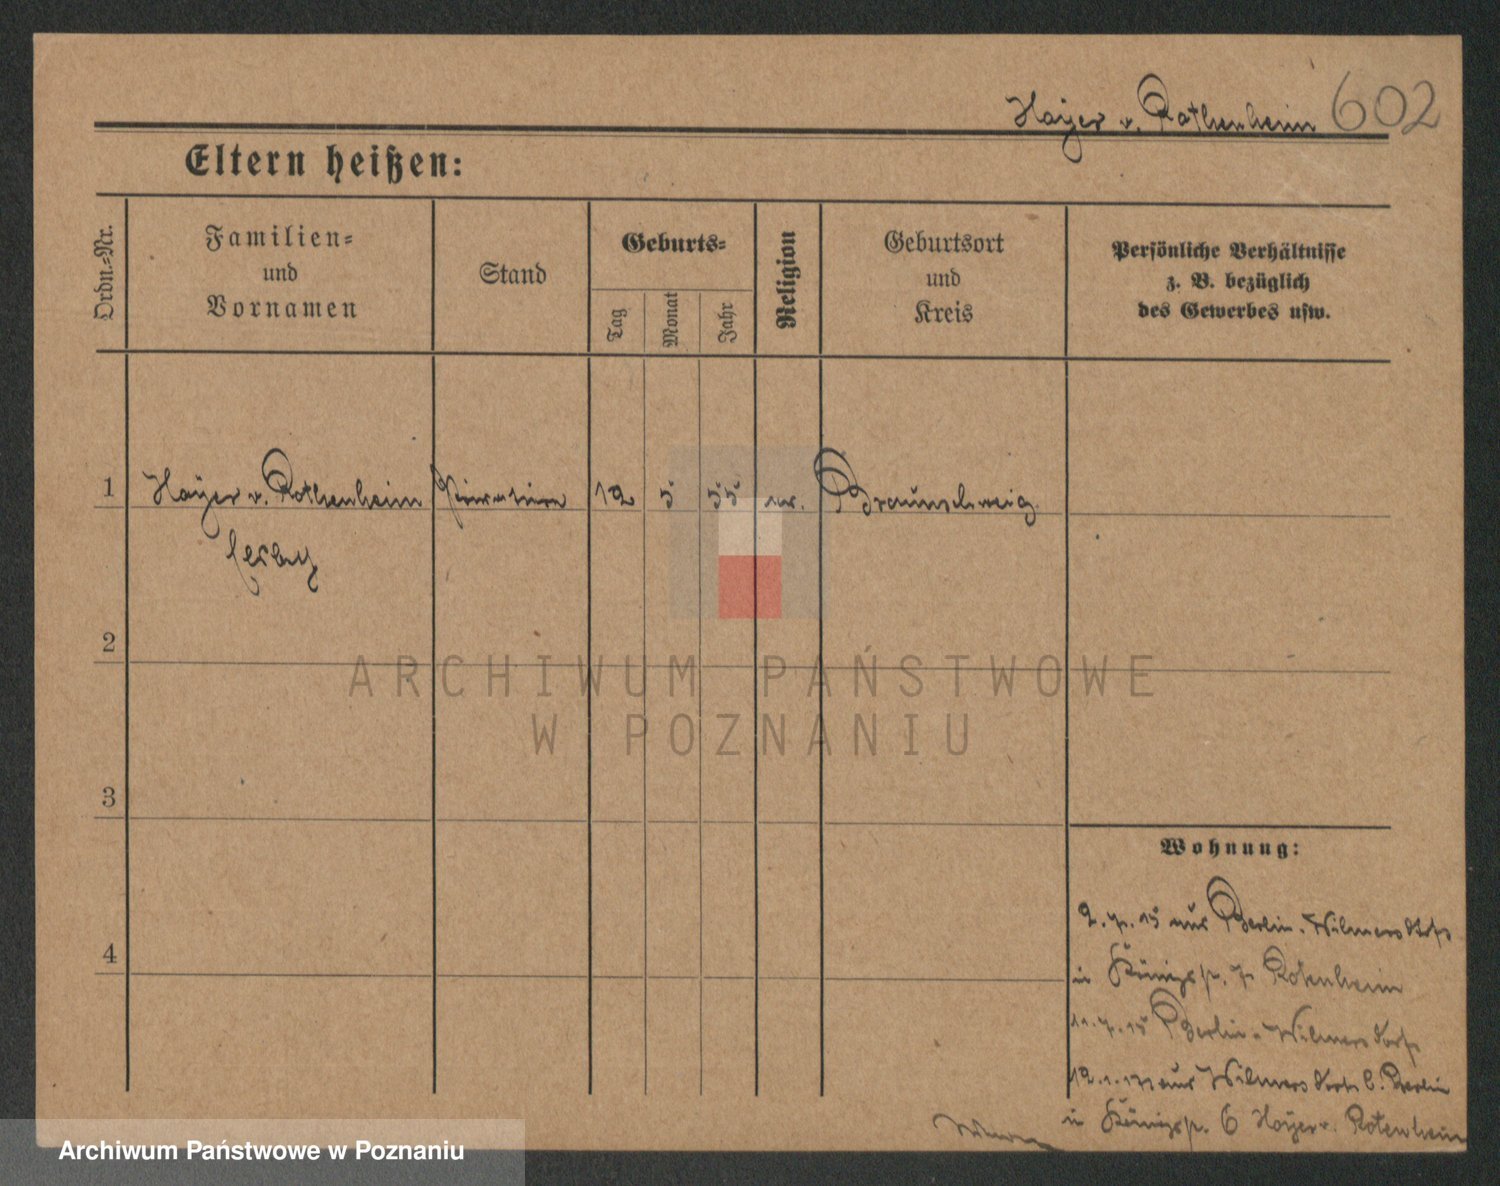 Hoÿer v. Rothenheim 602
Eltern heißen:
Ordn.=Nr.
Familien=
und
Vornamen
Stand
Geburts=
Tag
Monat
Jahr
Religion
Geburtsort
und
Kreis
Persönliche Verhältnisse
z. B. bezüglich
des Gewerbes usw.
1 Hoÿer v. Rothenheim 12 5 55 ev. Braunschweig.
2
3
4
Wohnung:
2. 7. 15 aus Berlin-Wilmersdorf
in Königspl. 7 Rotenheim
11. 7. 15 Berlin-Wilmersdorf
12. 1. aus Wilmersdorf b. Berlin
in Königspl. 6 Hoÿer v. Rotenheim
ARCHIWUM PAŃSTWOWE
W POZNANIU
Archiwum Państwowe w Poznaniu